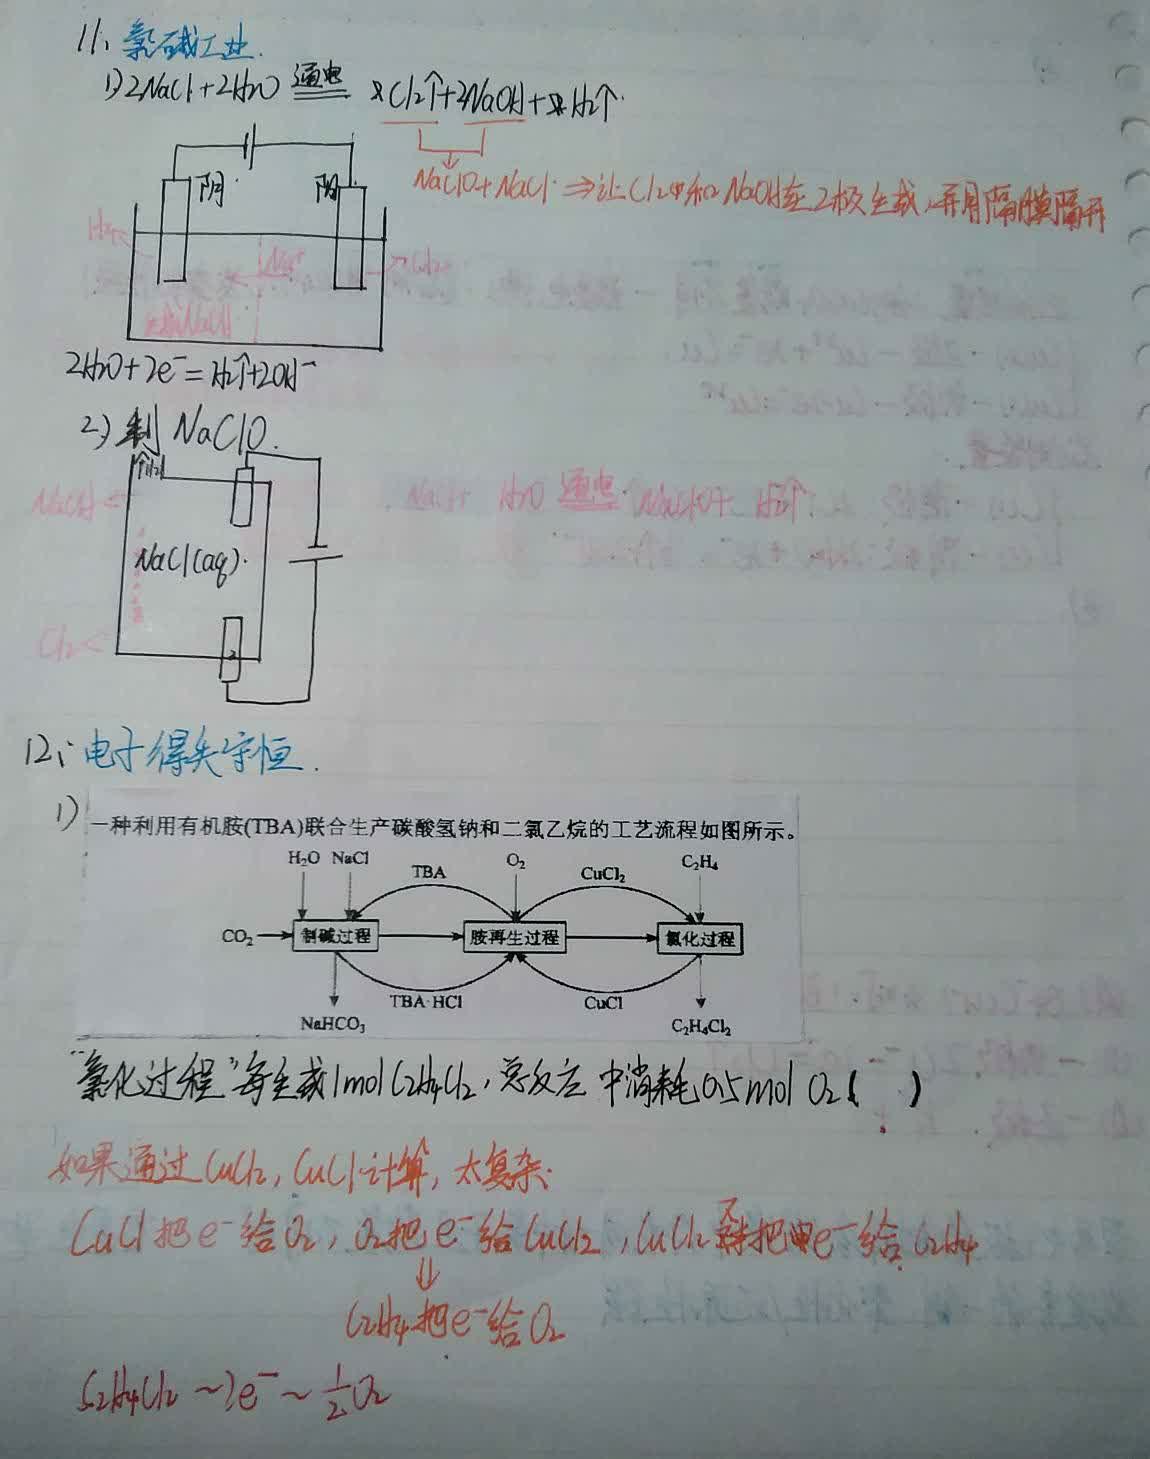 11、氯碱工业.
1) 2NaCl+2H2O 通电 Cl2↑+2NaOH+H2↑
NaClO+NaCl ⇒让Cl2和NaOH在2极生成,再用隔膜隔开
阴 阳
H2↑ Na+ Cl2
NaOH
2H2O+2e⁻=H2↑+2OH⁻
2) 制 NaClO.
↑H2
NaOH
NaCl(aq).
Cl2
NaCl+ H2O 通电 NaClO+ H2↑
12、电子得失守恒.
1)
一种利用有机胺(TBA)联合生产碳酸氢钠和二氯乙烷的工艺流程如图所示。
H₂O NaCl TBA O₂ CuCl₂ C₂H₄
CO₂ 制碱过程 胺再生过程 氯化过程
TBA·HCl CuCl
NaHCO₃ C₂H₄Cl₂
"氯化过程"每生成1mol C2H4Cl2,总反应中消耗0.5mol O2( )
如果通过CuCl2, CuCl计算,太复杂.
CuCl把e⁻给O2, O2把e⁻给CuCl2, CuCl2又把e⁻给C2H4
⇓
C2H4把e⁻给O2
C2H4Cl2 ~2e⁻~ 1/2 O2